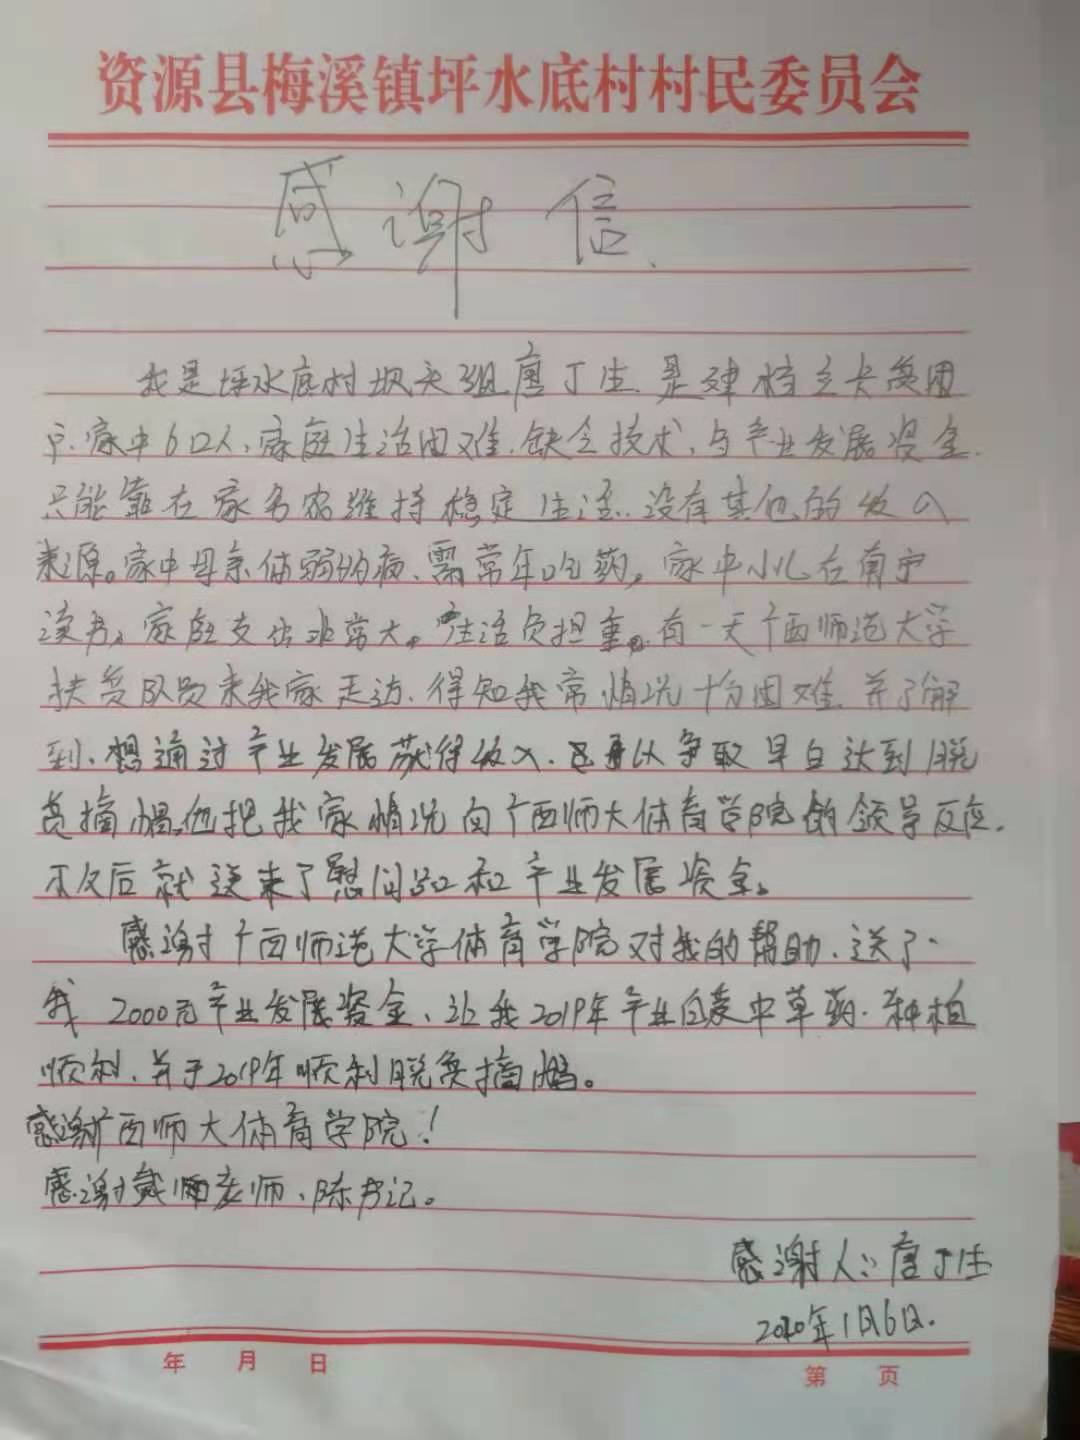 资源县梅溪镇坪水底村村民委员会
感谢信
我是坪水底村坝头组唐丁生.是建档立卡贫困
户.家中6口人,家庭生活困难.缺乏技术,与产业发展资金.
只能靠在家务农维持稳定生活.没有其他的收入
来源。家中母亲体弱多病、需常年吃药,家中小儿在南宁
读书,家庭支出非常大。生活负担重。有一天广西师范大学
扶贫队员来我家走访.得知我家情况十分困难.并了解
到、想通过产业发展获得收入、以争取早日达到脱
贫摘帽,他把我家情况向广西师大体育学院的领导反应.
不久后就送来了慰问品和产业发展资金。
感谢广西师范大学体育学院对我的帮助.送了
我2000元产业发展资金、让我2019年产业白菜中草药.种植
顺利、并于2019年顺利脱贫摘帽。
感谢广西师大体育学院!
感谢戴老师、陈书记。
感谢人:唐丁生
2020年1月6日.
年 月 日
第 页